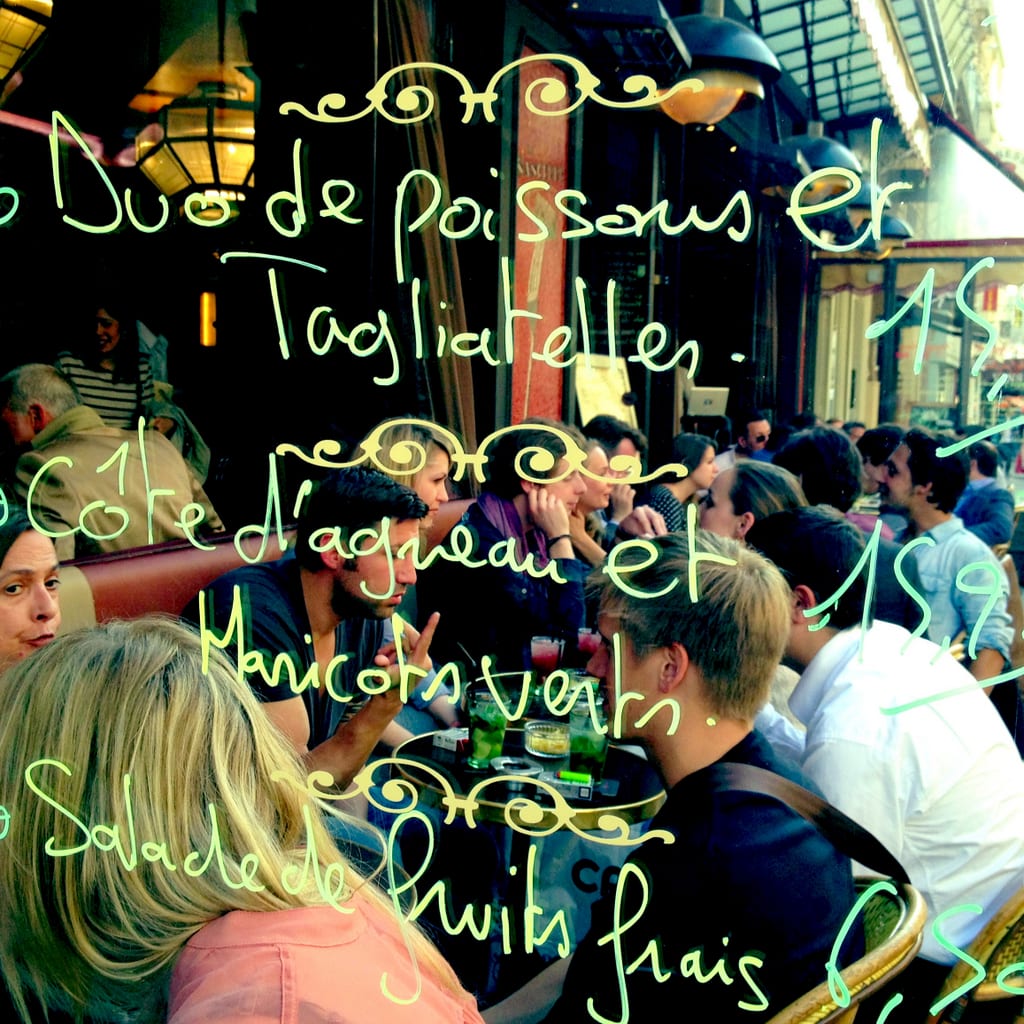 Duo de poissons et
Tagliatelles. 15,
Côte d'agneau et
Haricots verts. 15,9
Salade de fruits frais 6,50